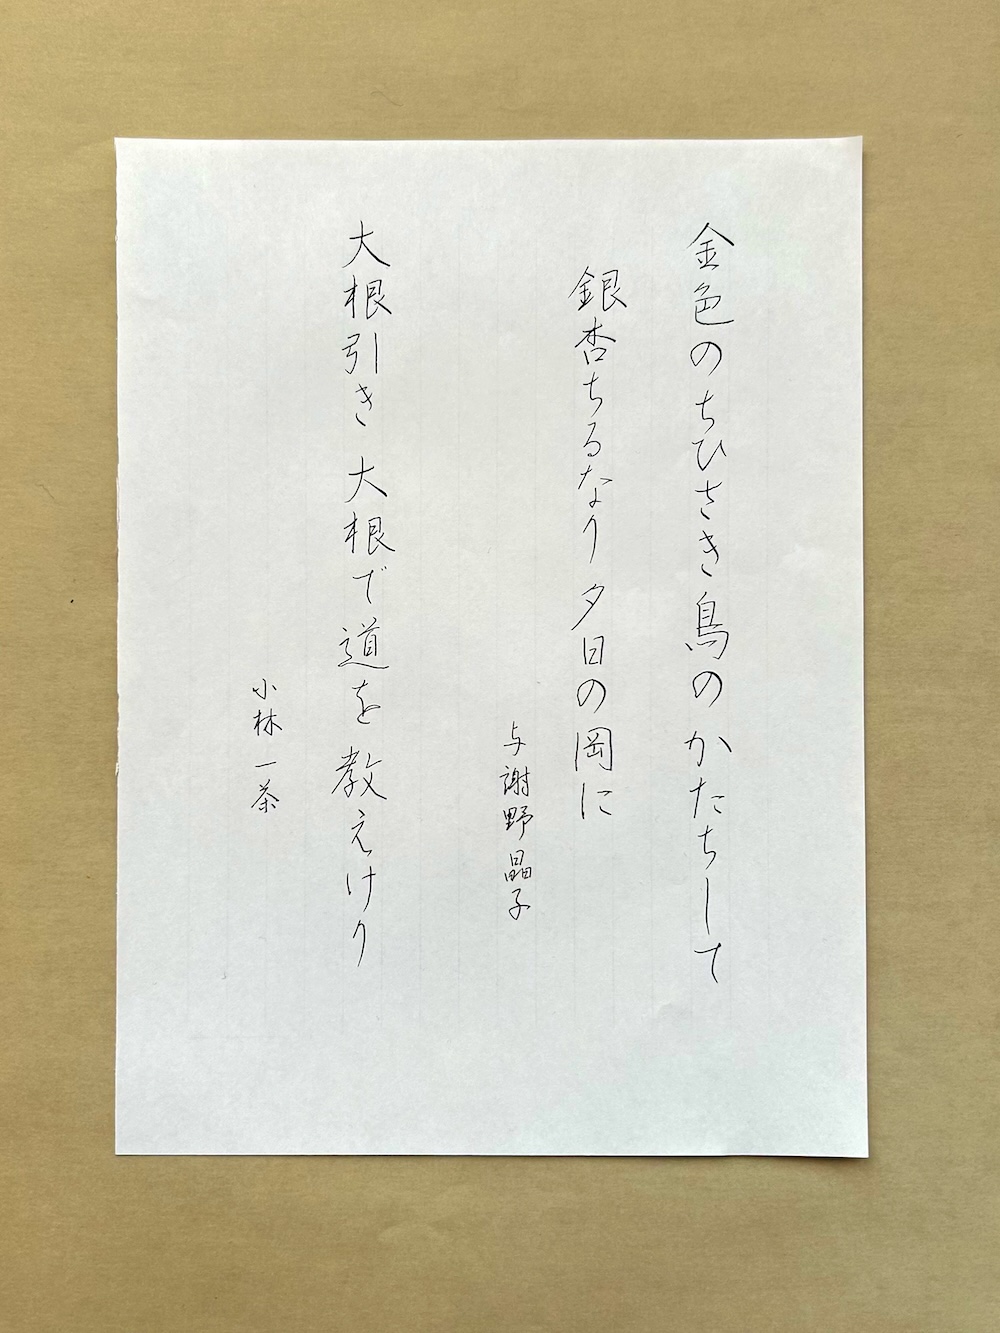 金色のちひさき鳥のかたちして
銀杏ちるなり夕日の岡に
与謝野晶子
大根引き大根で道を教えけり
小林一茶